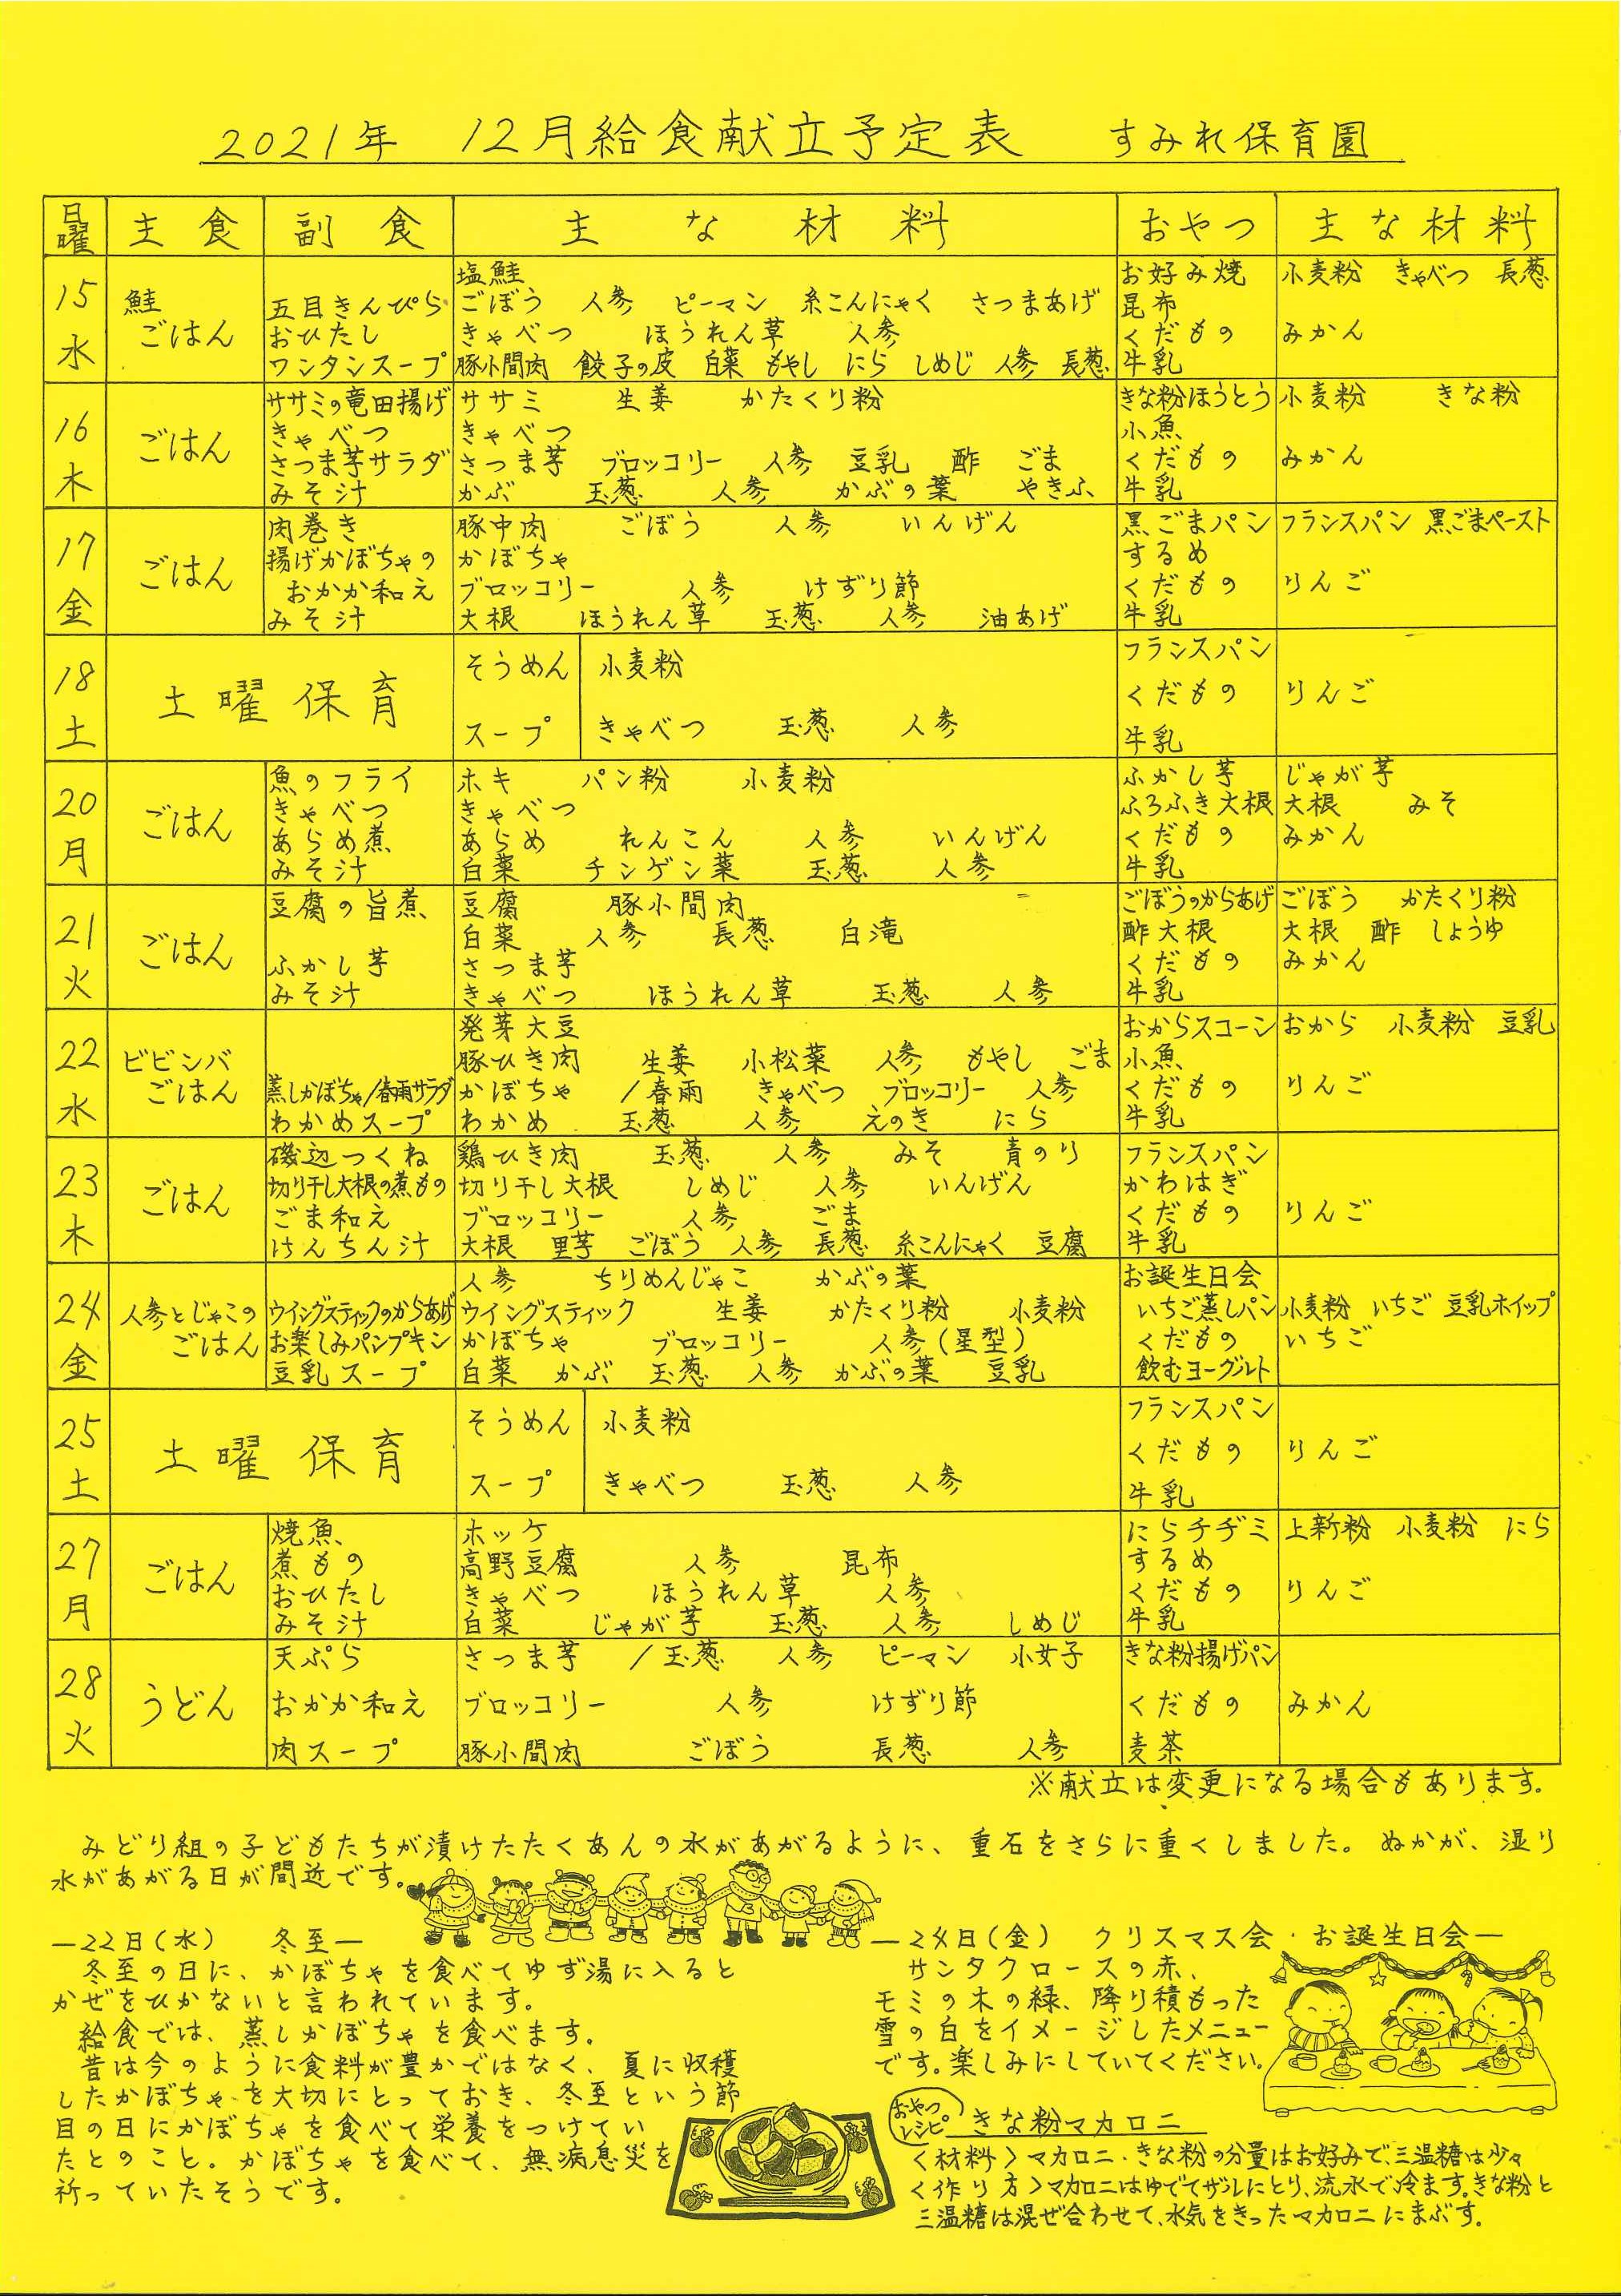 2021年 12月給食献立予定表 すみれ保育園
日曜 主食 副食 主な材料 おやつ 主な材料
15水 鮭ごはん
塩鮭 お好み焼 小麦粉 きゃべつ 長葱
五目きんぴら ごぼう 人参 ピーマン 糸こんにゃく さつまあげ 昆布
おひたし きゃべつ ほうれん草 人参 くだもの みかん
ワンタンスープ 豚小間肉 餃子の皮 白菜 もやし にら しめじ 人参 長葱 牛乳
16木 ごはん
ササミの竜田揚げ ササミ 生姜 かたくり粉 きな粉ほうとう 小麦粉 きな粉
きゃべつ きゃべつ 小魚
さつま芋サラダ さつま芋 ブロッコリー 人参 豆乳 酢 ごま くだもの みかん
みそ汁 かぶ 玉葱 人参 かぶの葉 やきふ 牛乳
17金 ごはん
肉巻き 豚中肉 ごぼう 人参 いんげん 黒ごまパン フランスパン 黒ごまペースト
揚げかぼちゃの かぼちゃ するめ
おかか和え ブロッコリー 人参 けずり節 くだもの りんご
みそ汁 大根 ほうれん草 玉葱 人参 油あげ 牛乳
18土 土曜保育
そうめん 小麦粉 フランスパン
くだもの りんご
スープ きゃべつ 玉葱 人参 牛乳
20月 ごはん
魚のフライ ホキ パン粉 小麦粉 ふかし芋 じゃが芋
きゃべつ きゃべつ ふろふき大根 大根 みそ
あらめ煮 あらめ れんこん 人参 いんげん くだもの みかん
みそ汁 白菜 チンゲン菜 玉葱 人参 牛乳
21火 ごはん
豆腐の旨煮 豆腐 豚小間肉 ごぼうのからあげ ごぼう かたくり粉
白菜 人参 長葱 白滝 酢大根 大根 酢 しょうゆ
ふかし芋 さつま芋 くだもの みかん
みそ汁 きゃべつ ほうれん草 玉葱 人参 牛乳
22水 ビビンバごはん
発芽大豆 おからスコーン おから 小麦粉 豆乳
豚ひき肉 生姜 小松菜 人参 もやし ごま 小魚
蒸しかぼちゃ/春雨サラダ かぼちゃ /春雨 きゃべつ ブロッコリー 人参 くだもの りんご
わかめスープ わかめ 玉葱 人参 えのき にら 牛乳
23木 ごはん
磯辺つくね 鶏ひき肉 玉葱 人参 みそ 青のり フランスパン
切り干し大根の煮もの 切り干し大根 しめじ 人参 いんげん かわはぎ
ごま和え ブロッコリー 人参 ごま くだもの りんご
けんちん汁 大根 里芋 ごぼう 人参 長葱 糸こんにゃく 豆腐 牛乳
24金 人参とじゃこのごはん
人参 ちりめんじゃこ かぶの葉 お誕生日会
ウイングスティックのからあげ ウイングスティック 生姜 かたくり粉 小麦粉 いちご蒸しパン 小麦粉 いちご 豆乳ホイップ
お楽しみパンプキン かぼちゃ ブロッコリー 人参(星型) くだもの いちご
豆乳スープ 白菜 かぶ 玉葱 人参 かぶの葉 豆乳 飲むヨーグルト
25土 土曜保育
そうめん 小麦粉 フランスパン
くだもの りんご
スープ きゃべつ 玉葱 人参 牛乳
27月 ごはん
焼魚 ホッケ にらチヂミ 上新粉 小麦粉 にら
煮もの 高野豆腐 人参 昆布 するめ
おひたし きゃべつ ほうれん草 人参 くだもの りんご
みそ汁 白菜 じゃが芋 玉葱 人参 しめじ 牛乳
28火 うどん
天ぷら さつま芋 /玉葱 人参 ピーマン 小女子 きな粉揚げパン
おかか和え ブロッコリー 人参 けずり節 くだもの みかん
肉スープ 豚小間肉 ごぼう 長葱 人参 麦茶
※献立は変更になる場合もあります。
みどり組の子どもたちが漬けたたくあんの水があがるように、重石をさらに重くしました。ぬかが、湿り
水があがる日が間近です。
―22日(水) 冬至―
冬至の日に、かぼちゃを食べてゆず湯に入ると
かぜをひかないと言われています。
給食では、蒸しかぼちゃを食べます。
昔は今のように食料が豊かではなく、夏に収穫
したかぼちゃを大切にとっておき、冬至という節
目の日にかぼちゃを食べて栄養をつけてい
たとのこと。かぼちゃを食べて、無病息災を
祈っていたそうです。
―24日(金) クリスマス会・お誕生日会―
サンタクロースの赤、
モミの木の緑、降り積もった
雪の白をイメージしたメニュー
です。楽しみにしていてください。
おやつレシピ きな粉マカロニ
<材料>マカロニ・きな粉の分量はお好みで、三温糖は少々
<作り方>マカロニはゆでてザルにとり、流水で冷ます。きな粉と
三温糖は混ぜ合わせて、水気をきったマカロニにまぶす。